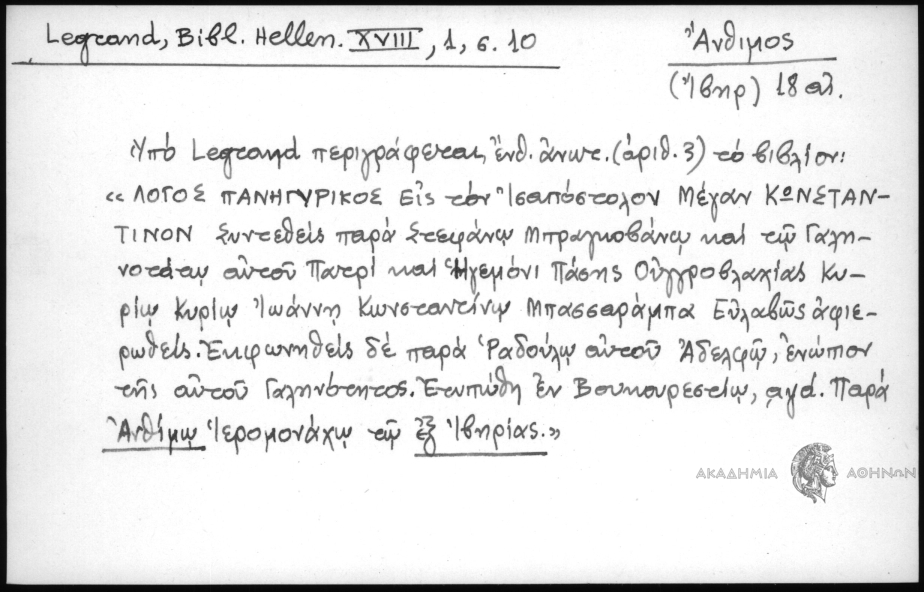 Legrand, Bibl. Hellen. XVIII, 1, σ. 10
Ἄνθιμος
(Ἴβηρ) 18 αι.
Ὑπό Legrand περιγράφεται, ἔνθ. ἄνωτ. (ἀριθ. 3) τό βιβλίον:
« ΛΟΓΟΣ ΠΑΝΗΓΥΡΙΚΟΣ Εἰς τόν Ἰσαπόστολον Μέγαν ΚΩΝΣΤΑΝ-
ΤΙΝΟΝ Συντεθείς παρά Στεφάνῳ Μπραγκοβάνῳ καί τῷ Γαλη-
νοτάτῳ αὐτοῦ Πατρί καί Ἡγεμόνι Πάσης Οὐγγροβλαχίας Κυ-
ρίῳ Κυρίῳ Ἰωάννῃ Κωνσταντίνῳ Μπασσαράμπα Εὐλαβῶς ἀφιε-
ρωθείς. Ἐκφωνηθείς δέ παρά Ῥαδούλῳ αὐτοῦ Ἀδελφῷ, ἐνώπιον
τῆς αὐτοῦ Γαληνότητος. Ἐτυπώθη ἐν Βουκουρεστίῳ, ͵αψά. Παρά
Ἀνθίμῳ Ἱερομονάχῳ τῷ ἐξ Ἰβηρίας.»
ΑΚΑΔΗΜΙΑ ΑΘΗΝΩΝ